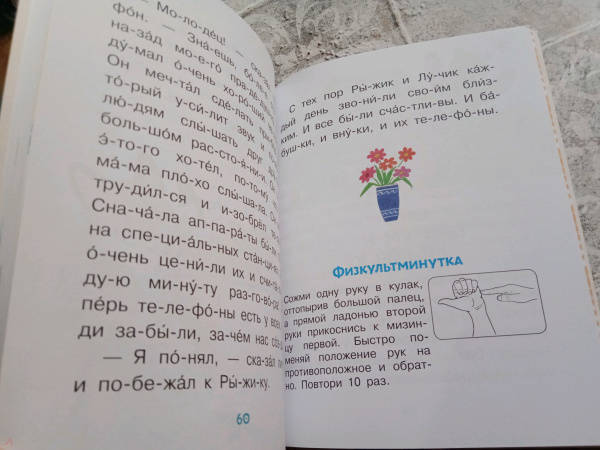 — Мо-ло-де́ц! — ска-
фо́н. — Зна́-ешь, бо́-
на-за́д мо-е-го́ пра-де́-
ду́-мал о́-чень хо-ро́-ший
Он меч-та́л сде́-лать при-
то́-рый у-си́-лит звук и по-
лю́-дям слы́-шать друг
боль-шо́м рас-сто-я́-ни-и. О
э́-то-го хо-те́л, по-то-му́
ма́-ма пло́-хо слы́-ша-ла. О
тру-ди́л-ся и и-зо-брёл те-
Сна-ча́-ла ап-па-ра́-ты бы́-
на спе-ци-а́ль-ных ста́н-ци-
о́-чень це-ни́-ли их и счи-та́-
ду-ю ми-ну́-ту раз-го-во́-ра
пе́рь те-ле-фо́-ны есть у все
ди за-бы́-ли, за-че́м нас со
— Я по́-нял, — ска-за́л
и по-бе-жа́л к Ры́-жи-ку.
60
С тех пор Ры́-жик и Лу́-чик ка́ж-
дый день зво-ни́-ли сво-и́м бли́з-
ким. И все бы́-ли сча́с-тли-вы. И ба́-
буш-ки, и вну́-ки, и их те-ле-фо́-ны.
Физкультминутка
Сожми одну руку в кулак,
оттопырив большой палец,
а прямой ладонью второй
руки прикоснись к мизин-
цу первой. Быстро по-
меняй положение рук на
противоположное и обрат-
но. Повтори 10 раз.